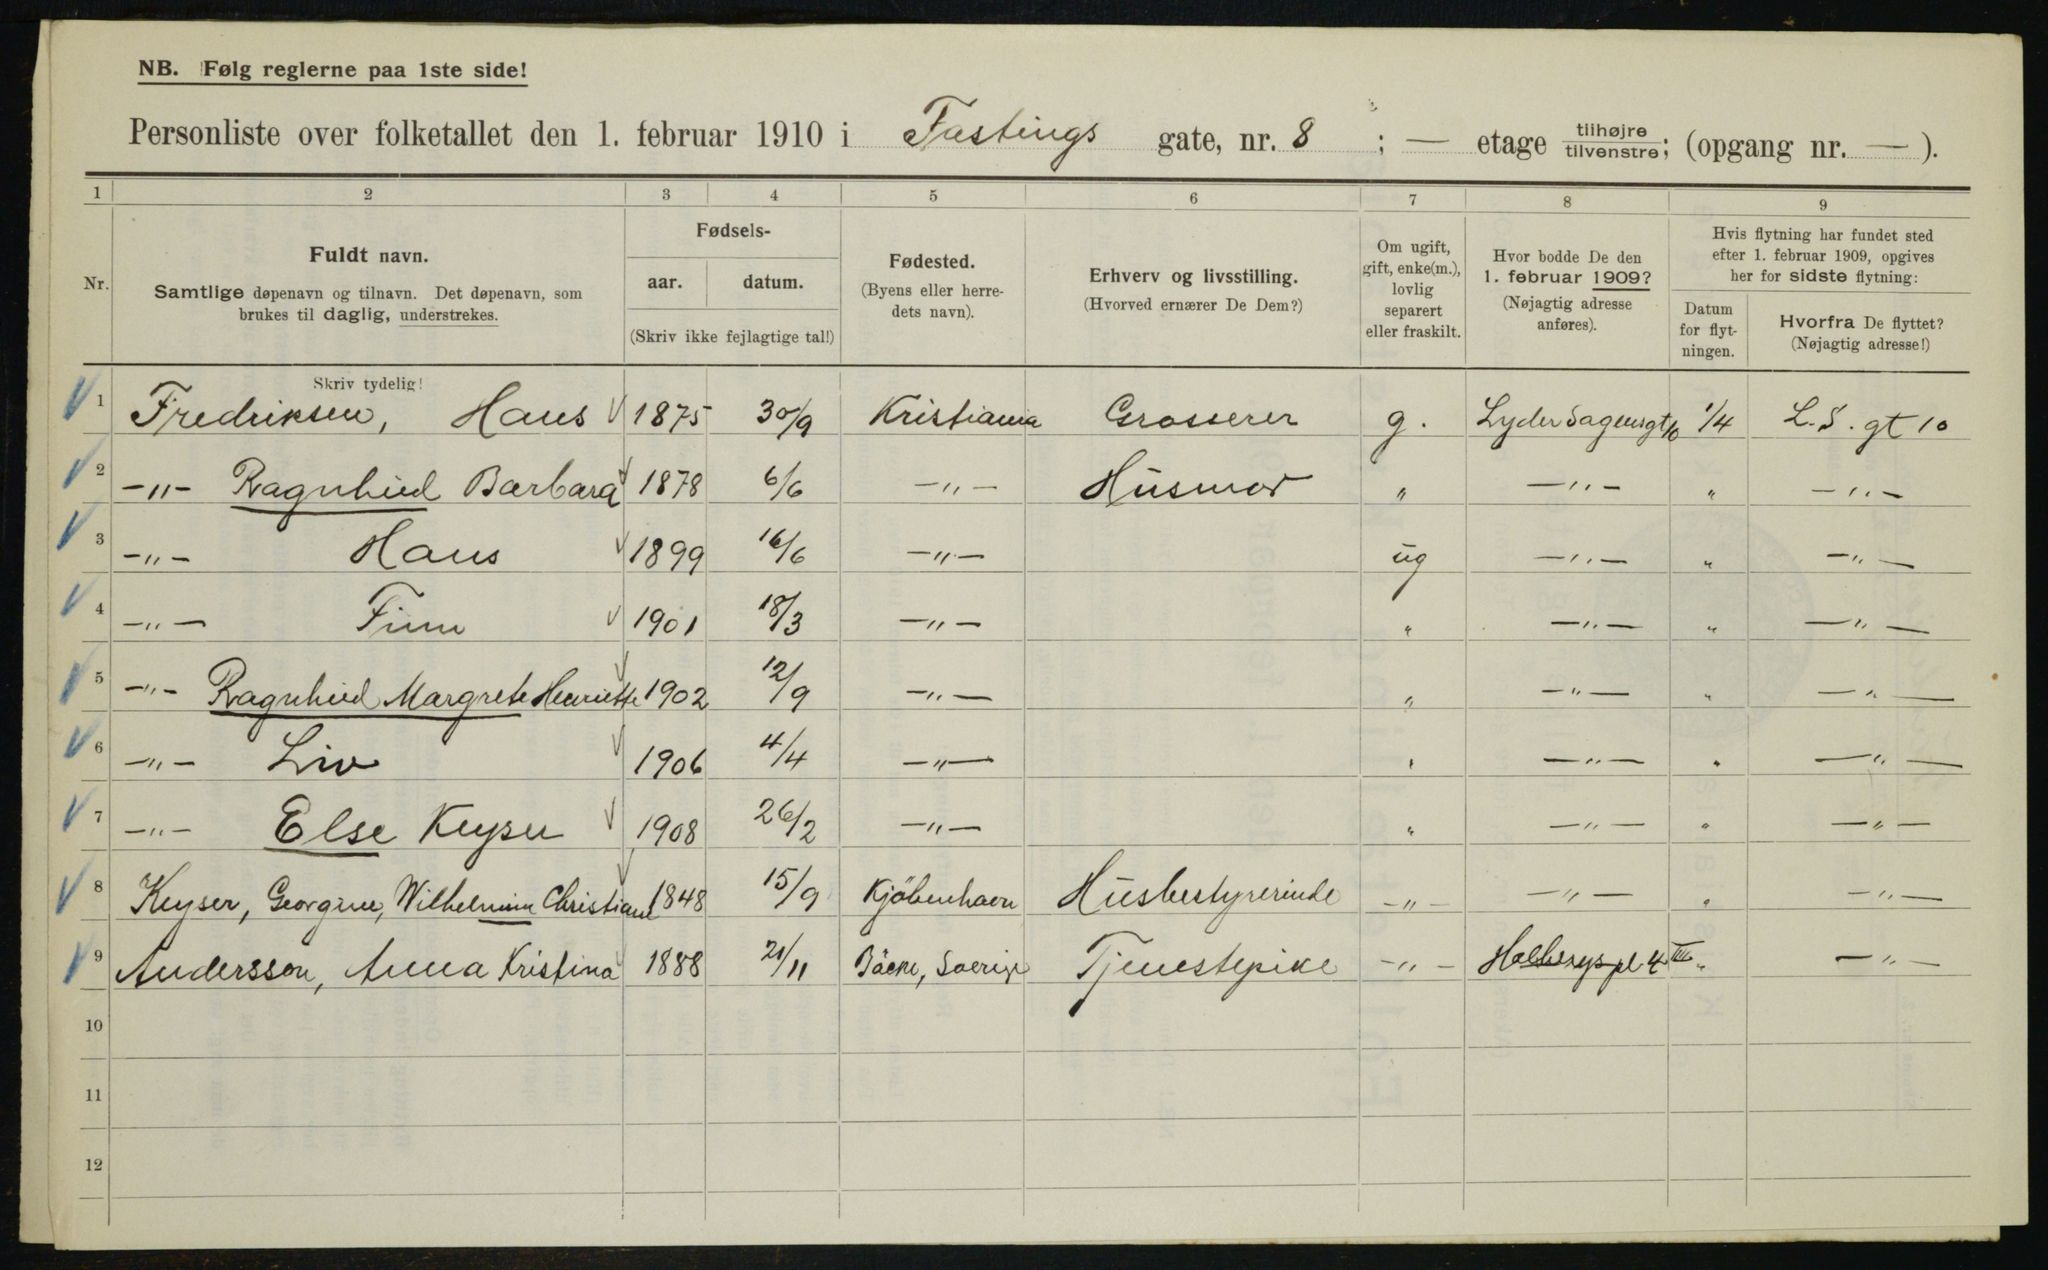 NB. Følg reglerne paa 1ste side!
Personliste over folketallet den 1. februar 1910 i Fastings gate, nr. 8 ; — etage tilhøjre tilvenstre; (opgang nr. — ).
1 2 3 4 5 6 7 8 9
Nr.
Fuldt navn.
Samtlige døpenavn og tilnavn. Det døpenavn, som
brukes til daglig, understrekes.
Fødsels-
aar. datum.
(Skriv ikke fejlagtige tal!)
Fødested.
(Byens eller herre-
dets navn).
Erhverv og livsstilling.
(Hvorved ernærer De Dem?)
Om ugift,
gift, enke(m.),
lovlig
separert
eller fraskilt.
Hvor bodde De den
1. februar 1909?
(Nøjagtig adresse
anføres).
Hvis flytning har fundet sted
efter 1. februar 1909, opgives
her for sidste flytning:
Datum
for flyt-
ningen.
Hvorfra De flyttet?
(Nøjagtig adresse!)
Skriv tydelig!
1 Fredriksen, Hans 1875 30/9 Kristiania Grosserer g. Lyder Sagensgt 10 1/4 L. S. gt 10
2 —"— Ragnhild Barbara 1878 6/6 —"— Husmor " —"— " —"—
3 —"— Hans 1899 16/6 —"— ug —"— " —"—
4 —"— Finn 1901 18/3 —"— " —"— " —"—
5 —"— Ragnhild Margrete Henriette 1902 12/9 —"— " —"— " —"—
6 —"— Liv 1906 4/4 —"— " —"— " —"—
7 —"— Else Keyser 1908 26/2 —"— " —"— " —"—
8 Keyser, Georgine, Wilhelmine Christiane 1848 15/9 Kjöbenhavn Husbestyrerinde —"— —"— " —"—
9 Andersson, Anna Kristina 1888 21/11 Bäcke, Sverige Tjenestepike —"— Holbergs pl 4 III " —"—
10
11
12